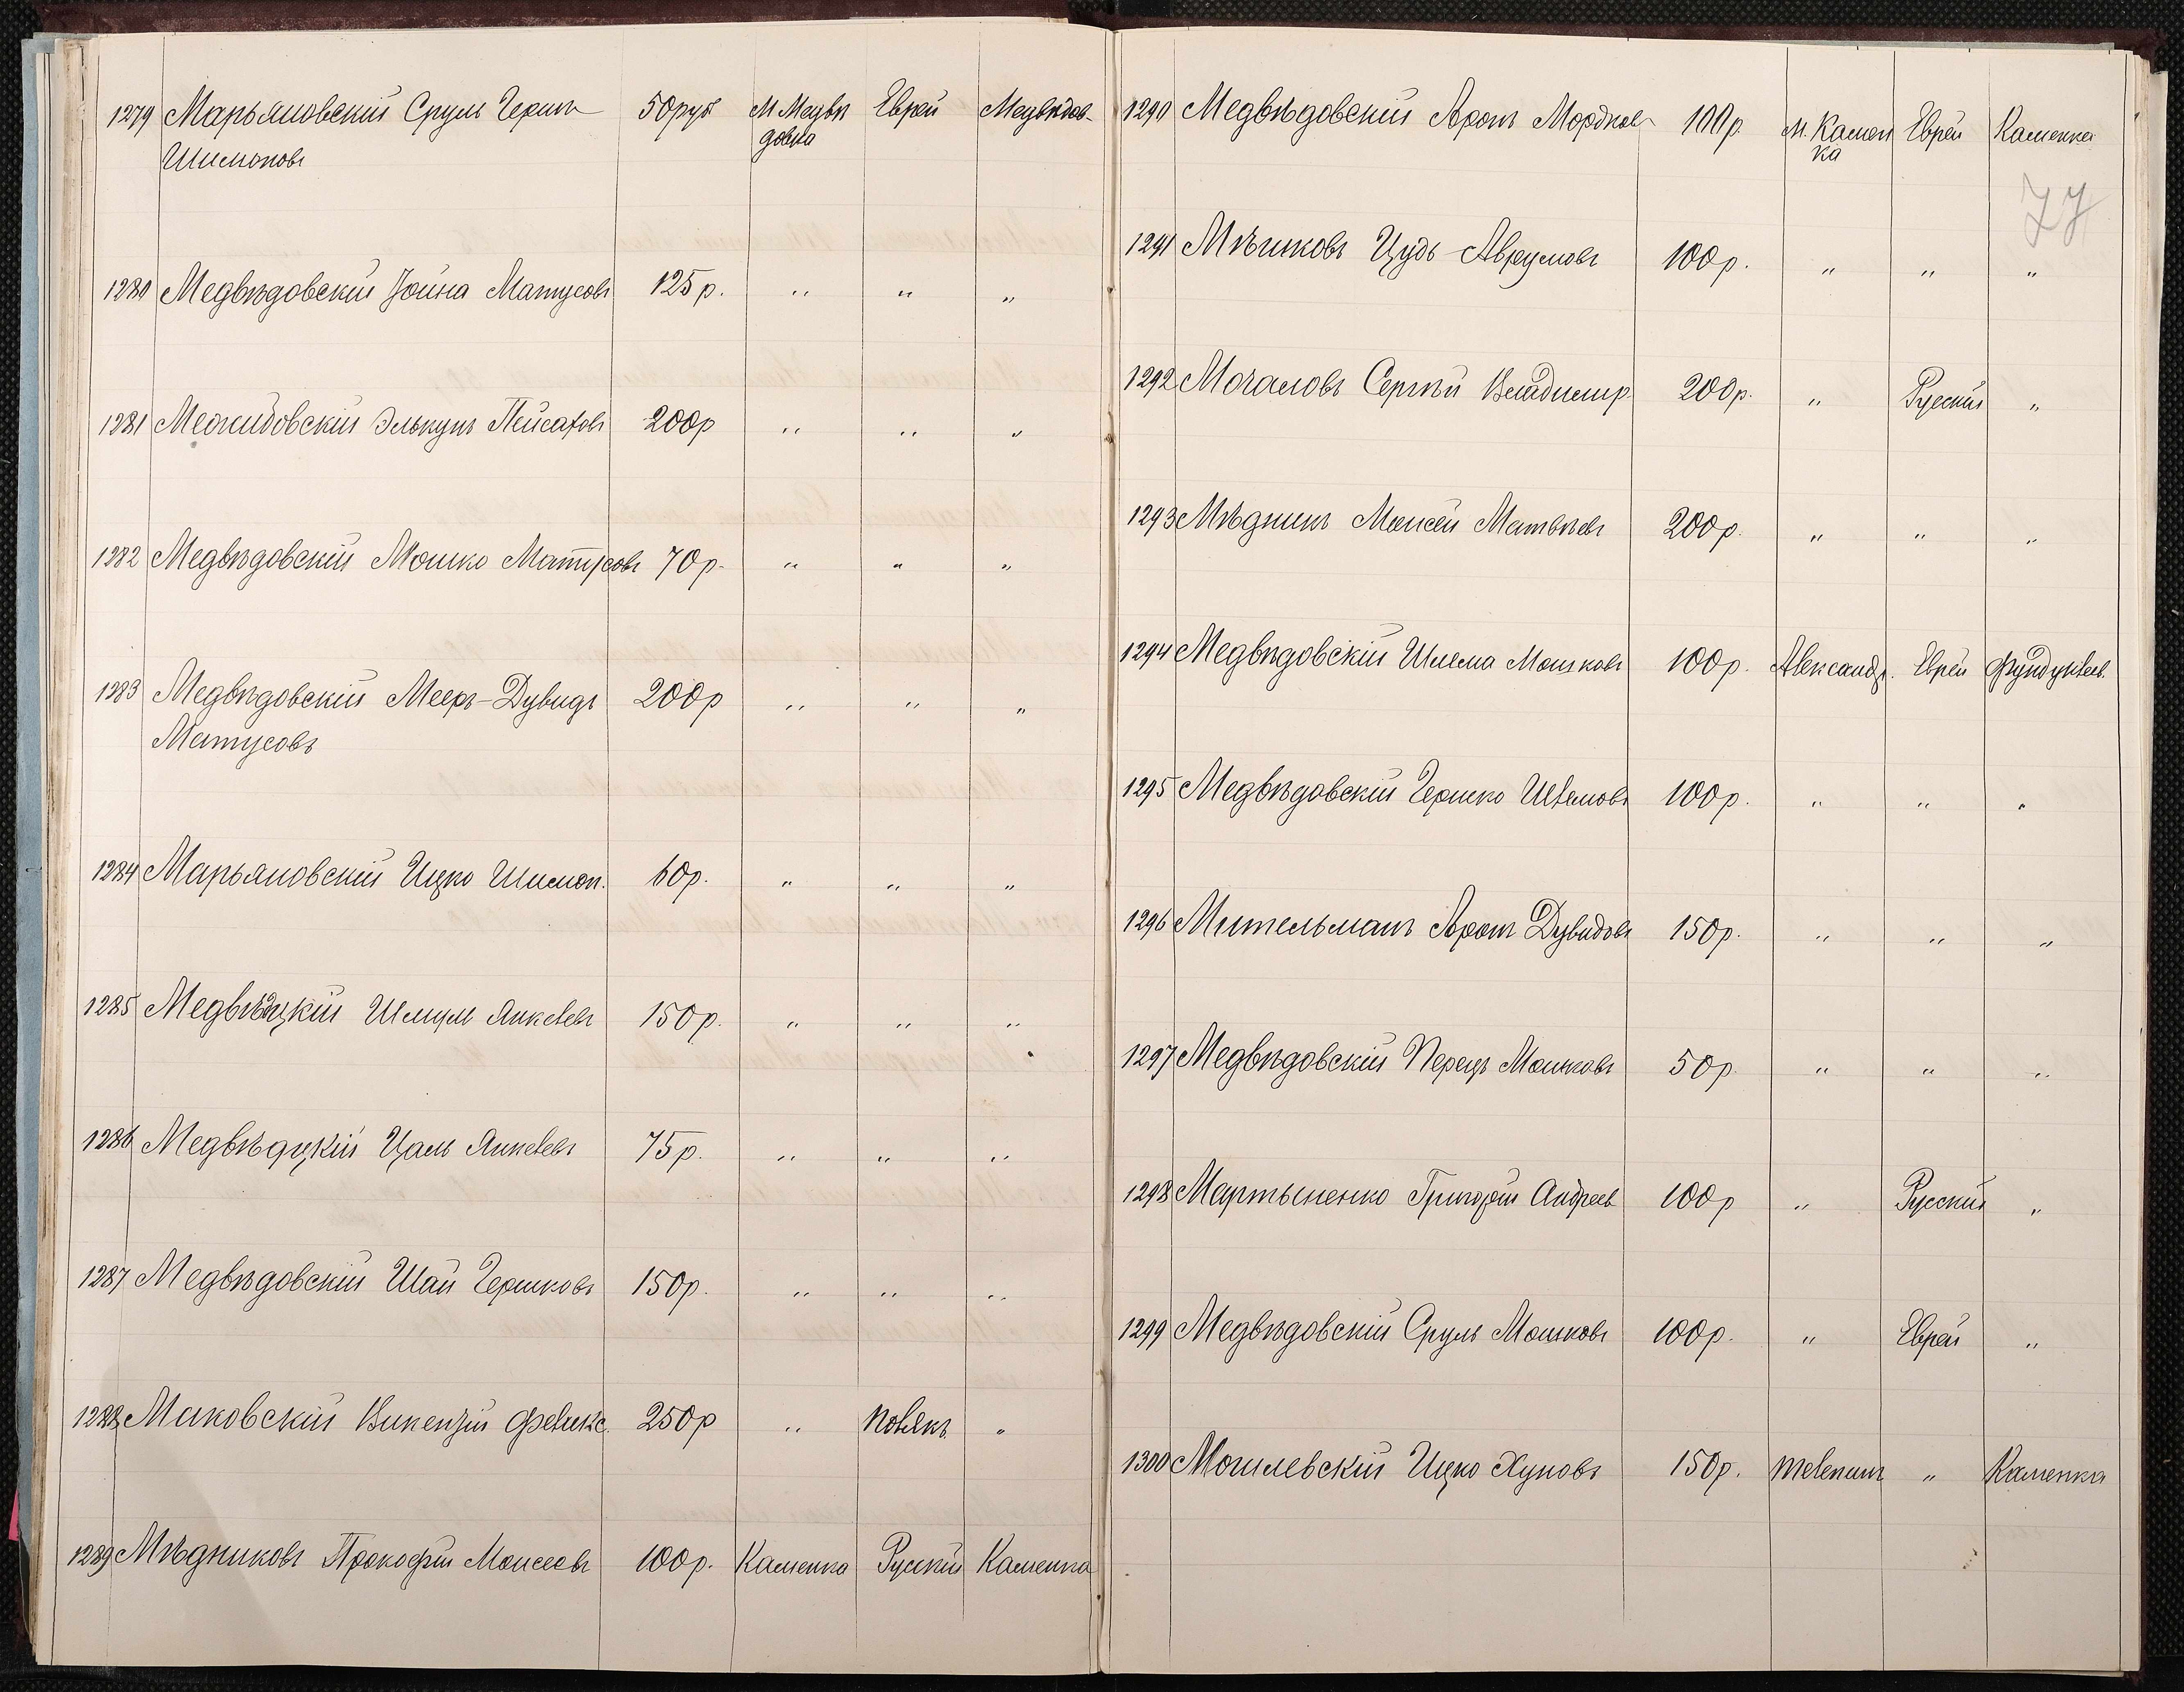 1279 Марьяновскій Сруль Гершъ 50руб М Медвѣ Еврей Медвѣдов.
Шимоновъ довка
1280 Медвѣдовскій Іойна Матусовъ 125р. " " "
1281 Межидовскій Элькунъ Пейсаховъ 200р " " "
1282 Медвѣдовскій Мошко Матусовъ 70р. " " "
1283 Медвѣдовскій Мееръ-Дувидъ 200р " " "
Матусовъ
1284 Марьяновскій Ицко Шимон. 60р. " " "
1285 Медвѣдцкій Шмуль Янкелевъ 150р. " " "
1286 Медвѣдцкій Цаль Янкелевъ 75р. " " "
1287 Медвѣдовскій Шая Гершковъ 150р. " " "
1288 Маковскій Викентій Феликс. 250р " Полякъ "
1289 Мѣдниковъ Прокофій Моисеевъ 100р. Каменка Русскій Каменка
1290 Медвѣдовскій Аронъ Мордков 100р. м. Камен Еврей Каменка
ка
77
1291 Мѣшковъ Цудь Аврумовъ 100р. " " "
1292 Мочаловъ Сергѣй Владимир. 200р. " Русскій "
1293 Мѣдникъ Моисей Матвѣевъ 200р. " " "
1294 Медвѣдовскій Шлема Мошковъ 100р. Александр. Еврей Фундуклеев.
1295 Медвѣдовскій Гершко Шлемовъ 100р. " " "
1296 Мительманъ Аронъ Дувидовъ 150р. " " "
1297 Медвѣдовскій Перецъ Мошковъ 50р " " "
1298 Мартыненко Григорій Андреев 100р " Русскій "
1299 Медвѣдовскій Сруль Мошковъ 100р. " Еврей "
1300 Могилевскій Ицко Хуновъ 150р. Телепино " Каменка